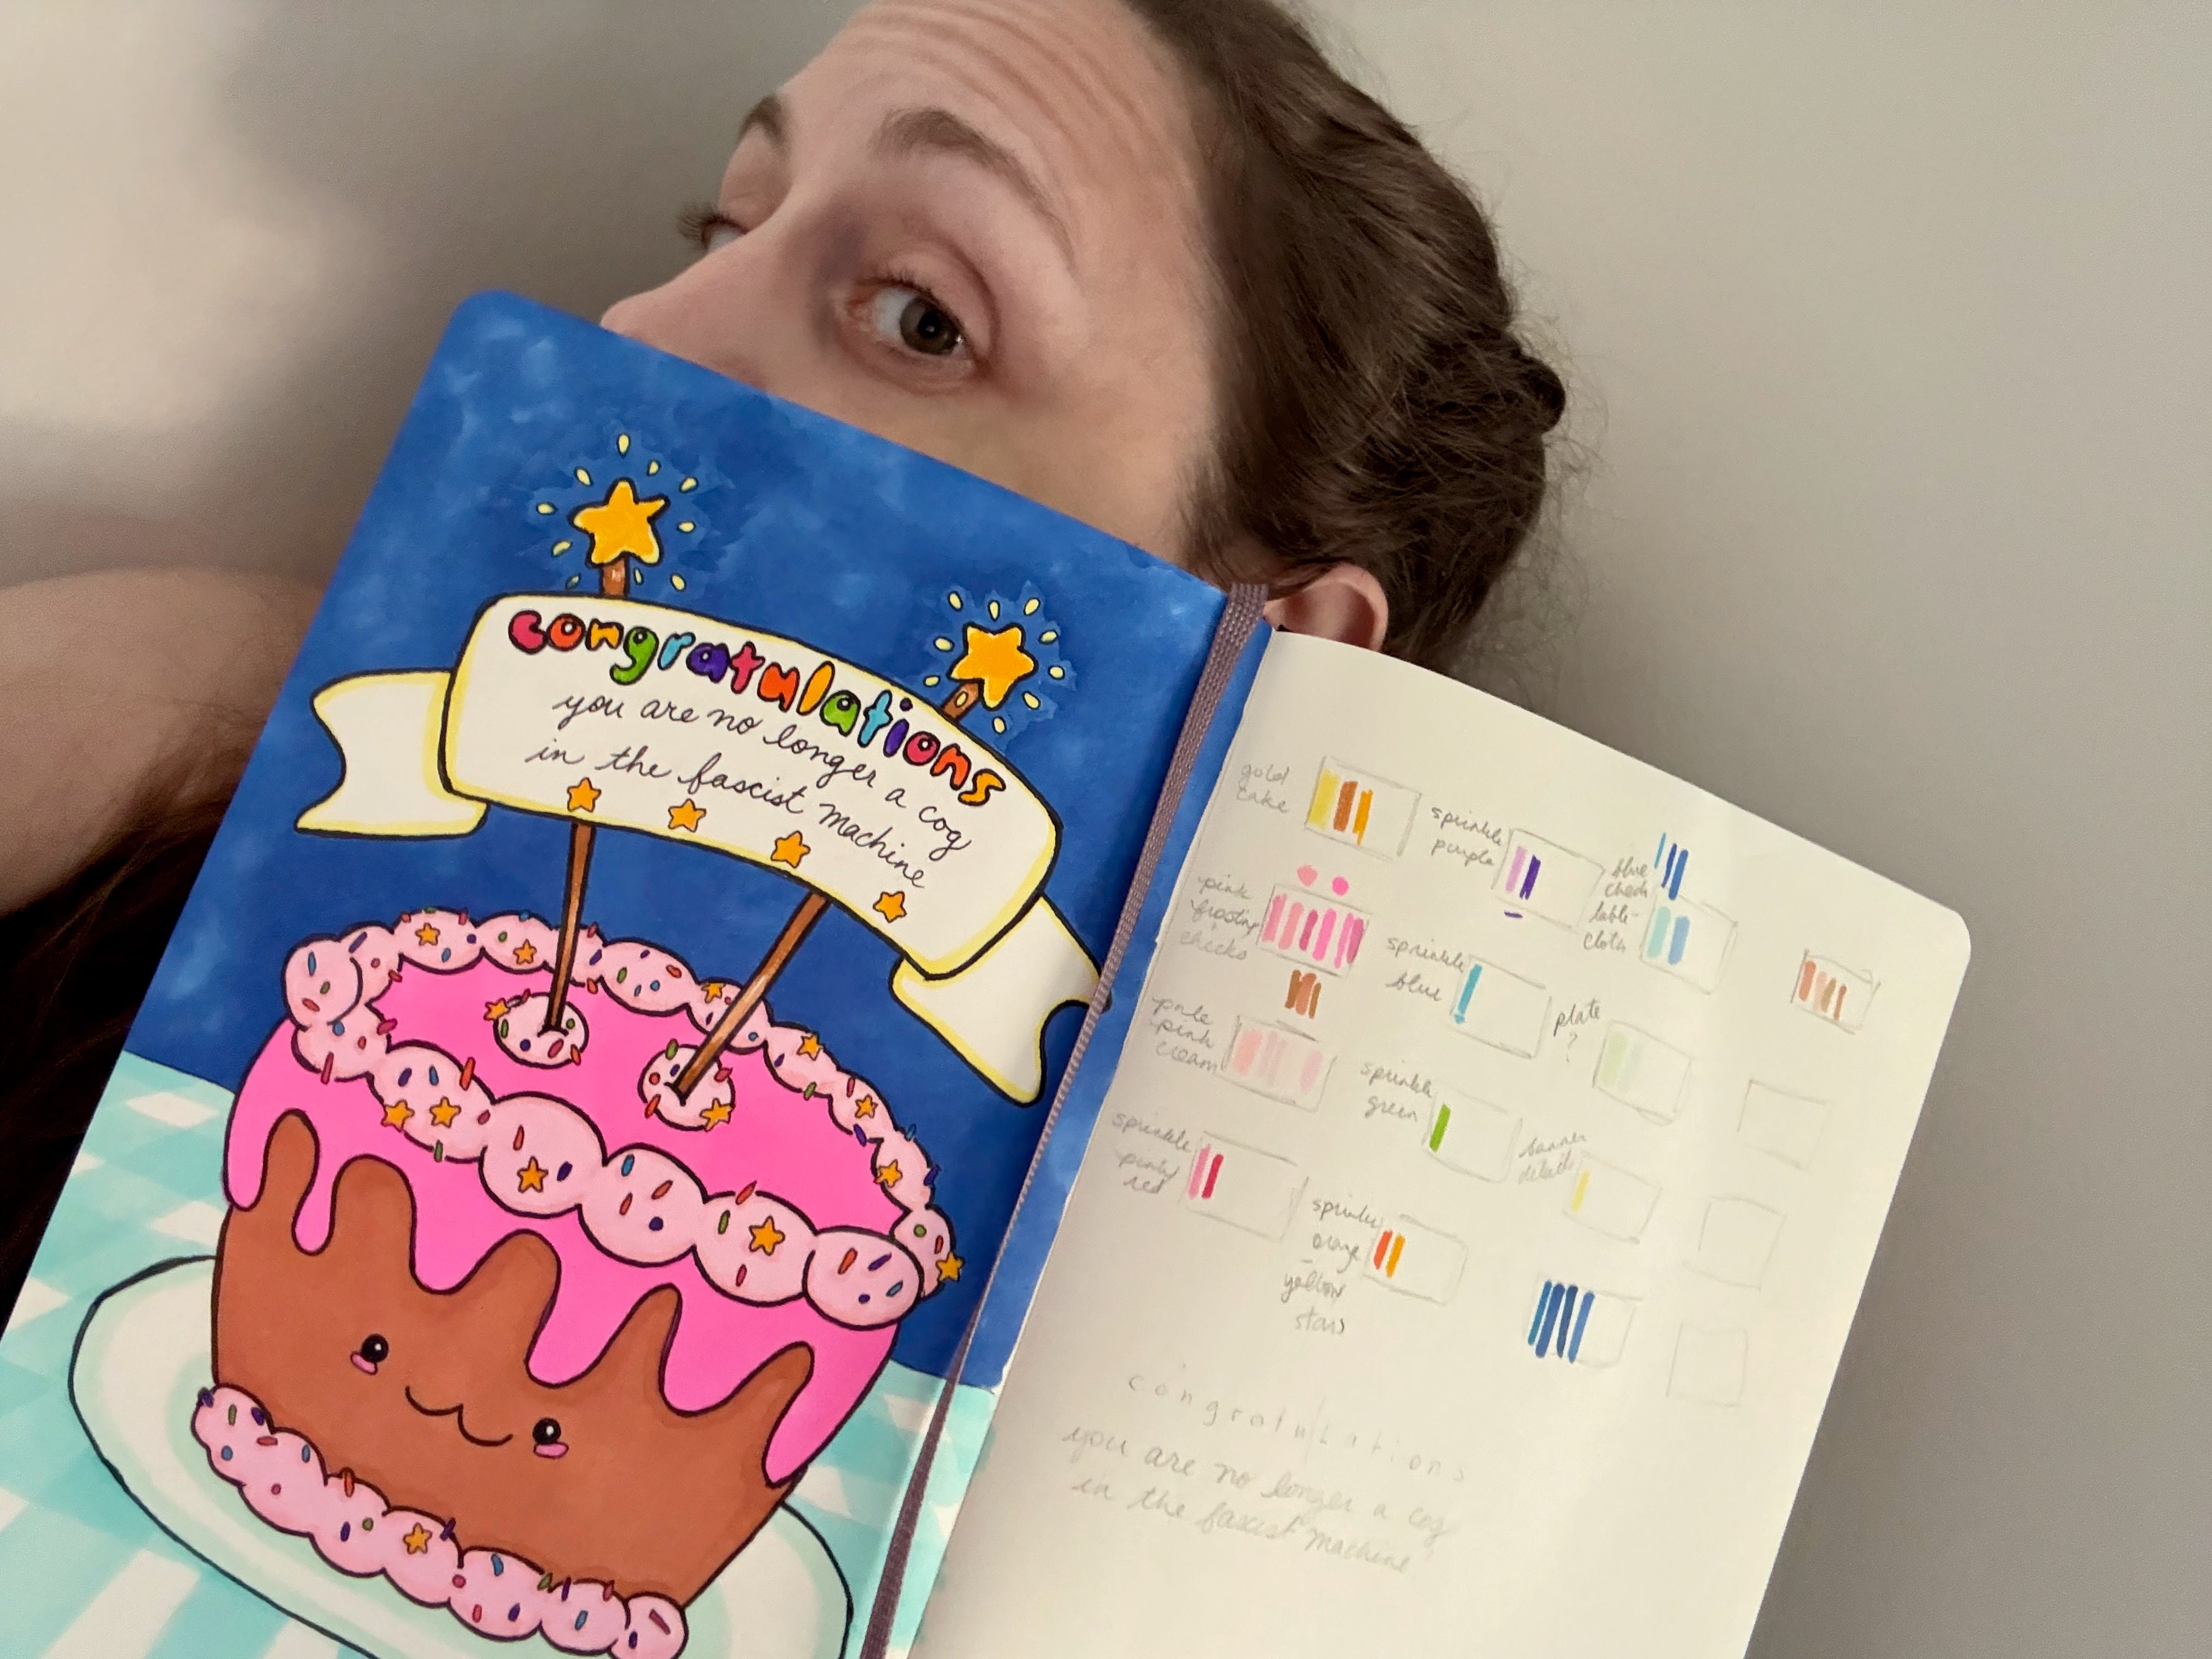 congratulations
you are no longer a cog
in the fascist machine
gold
cake
pink
frosting
cheeks
pale
pink
cream
sprinkle
pinky
red
sprinkle
purple
sprinkle
blue
sprinkle
green
sprinkle
orange
yellow
stars
blue
check
table-
cloth
plate
?
banner
details
congratulations
you are no longer a cog
in the fascist machine